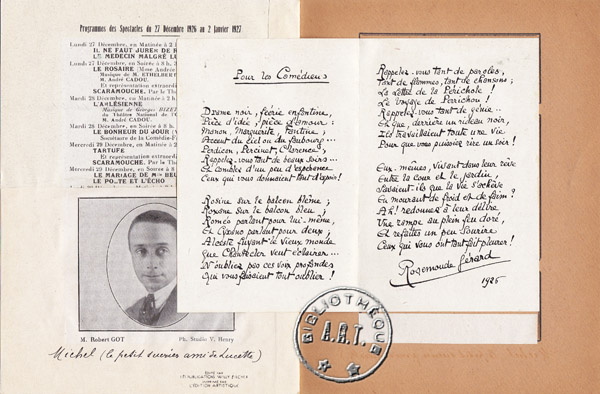 Programmes des Spectacles du 27 Décembre 1926 au 2 Janvier 1927
Lundi 27 Décembre, en Matinée à 2 h
IL NE FAUT JURER DE R
LE MEDECIN MALGRÉ LU
Lundi 27 Décembre, en Soirée à 8 h.
LE ROSAIRE (Mme André
Musique de M. ETHELBERT
M. André CADOU.
Et représentation extraordi
SCARAMOUCHE, Par le Th
Mardi 28 Décembre, en Matinée à 2
L'ARLÉSIENNE
Musique de Georges BIZET
du Théâtre National de l'O
CADOU.
Mardi 28 Décembre, en Soirée à 8 h
LE BONHEUR DU JOUR (
Sociétaire de la Comédie-F
Mercredi 29 Décembre, en Matinée à
TARTUFE
Et représentation extraordi
SCARAMOUCHE. Par le Thé
Mercredi 29 Décembre, en Soirée à 8
LE MARIAGE DE Mlle BEL
LE POÈTE ET L'ÉCHO
M. Robert GOT
Ph. Studio V. Henry
Michel (le petit ouvrier ami de Lucette)
ÉDITÉ PAR
L'ÉDITION ARTISTIQUE
Pour les Comédiens
Drame noir, féerie enfantine,
Pièce d'idée, pièce d'amour :
Manon, Marguerite, Fantine,
Accent du ciel ou du faubourg...
Perdican, Percinet, Clarence,
Rappelez-vous tant de beaux soirs...
Et comblez d'un peu d'espérance
Ceux qui vous donnaient tant d'espoir!
Rosine sur le balcon blême ;
Roxane sur le balcon bleu ;
Roméo parlant pour lui-même,
Et Cyrano parlant pour deux ;
Alceste fuyant le vieux monde
Que Chantecler veut éclairer...
N'oubliez pas ces voix profondes
Qui vous faisaient tout oublier !
Rappelez-vous tant de paroles,
Tant de flammes, tant de chansons ;
La Lettre de la Périchole !
Le Voyage de Perrichon !
Rappelez-vous tant de génie...
Et que, derrière un rideau noir,
Ils travaillaient toute une vie
Pour que vous puissiez rire un soir !
Eux-mêmes, vivant dans leur rêve
Entre la cour et le jardin,
Savaient-ils que la vie s'achève
En mourant de froid et de faim ?
Ah ! redonnez à leur délire
Une rampe au plein feu doré,
Et refaites un peu sourire
Ceux qui vous ont tant fait pleurer !
Rosemonde Gérard
1926
BIBLIOTHÈQUE
A.R.T.